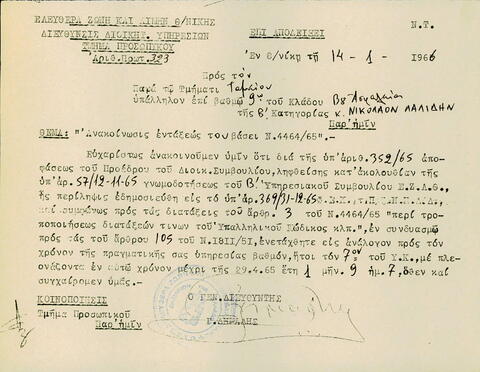 ΕΛΕΥΘΕΡΑ ΖΩΝΗ ΚΑΙ ΛΙΜΗΝ Θ/ΝΙΚΗΣ
ΕΠΙ ΑΠΟΔΕΙΞΕΙ
Ν.Τ.
ΔΙΕΥΘΥΝΣΙΣ ΔΙΟΙΚΗΤ. ΥΠΗΡΕΣΙΩΝ
ΤΜΗΜΑ ΠΡΟΣΩΠΙΚΟΥ
Ἀριθ.Πρωτ. 323
Ἐν Θ/νίκῃ τῇ 14-1-1966
Πρός τόν
Παρά τῷ Τμήματι Ταμείου
ὑπάλληλον ἐπί βαθμῷ 9ῳ τοῦ Κλάδου Β8
τῆς Β' Κατηγορίας κ. ΝΙΚΟΛΑΟΝ ΛΑΛΙΔΗΝ
Παρ'ἡμῖν
ΘΕΜΑ: "Ἀνακοίνωσις ἐντάξεώς του βάσει Ν.4464/65".-
Εὐχαρίστως ἀνακοινοῦμεν ὑμῖν ὅτι διά τῆς ὑπ'ἀριθ. 352/65 ἀπο-
φάσεως τοῦ Προέδρου τοῦ Διοικ.Συμβουλίου, ληφθείσης κατ'ἀκολουθίαν τῆς
ὑπ'ἀρ. 57/12-11-65 γνωμοδοτήσεως τοῦ Β' Ὑπηρεσιακοῦ Συμβουλίου Ε.Ζ.Λ.Θ.,
ἧς περίληψις ἐδημοσιεύθη εἰς τό ὑπ'ἀρ. 369/31-12-65
καί συμφώνως πρός τάς διατάξεις τοῦ ἄρθρ. 3 τοῦ Ν.4464/65 "περί τρο-
ποποιήσεως διατάξεών τινων τοῦ Ὑπαλληλικοῦ Κώδικος κλπ.", ἐν συνδυασμῷ
πρός τάς τοῦ ἄρθρου 105 τοῦ Ν.1811/51, ἐνετάχθητε εἰς ἀνάλογον πρός τόν
χρόνον τῆς πραγματικῆς σας ὑπηρεσίας βαθμόν, ἤτοι τόν 7ον τοῦ Υ.Κ., μέ πλε-
ονάζοντα ἐν αὐτῷ χρόνον μέχρι τῆς 29.4.65 ἔτη 1 μῆν. 9 ἡμ. 7, ὅθεν καί
συγχαίρομεν ὑμᾶς.-
ΚΟΙΝΟΠΟΙΗΣΙΣ
Ο ΓΕΝ. ΔΙΕΥΘΥΝΤΗΣ
Τμῆμα Προσωπικοῦ
Παρ'ἡμῖν